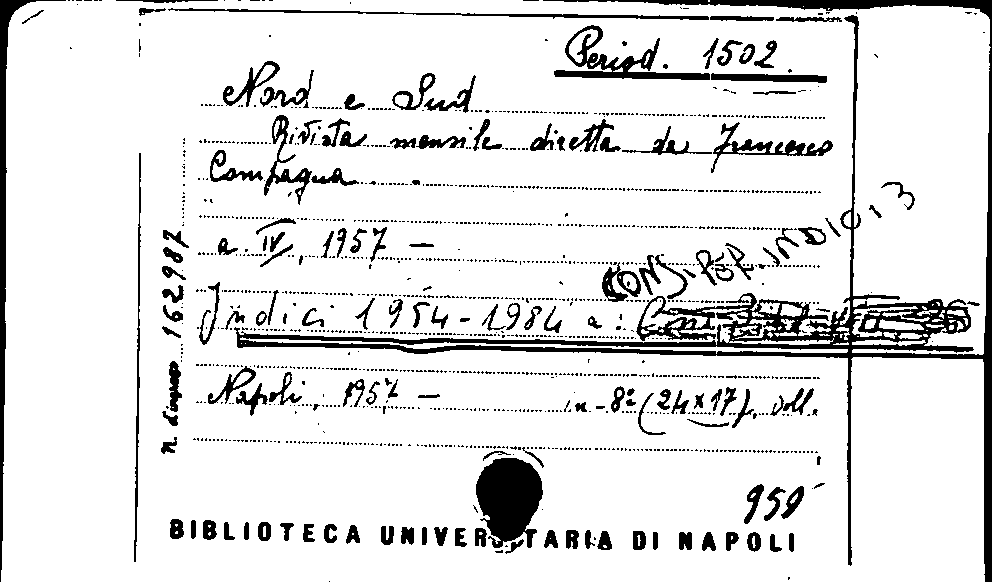 Period. 1502.
Nord e Sud.
Rivista mensile diretta da Francesco
Compagna. .
a. IV, 1957 –
CONS. PER. IND 10 13
Indici 1954-1984 a:
Napoli, 1957 – in-8º (24x17), voll.
n. d'ingresso 162987
959
BIBLIOTECA UNIVERSITARIA DI NAPOLI